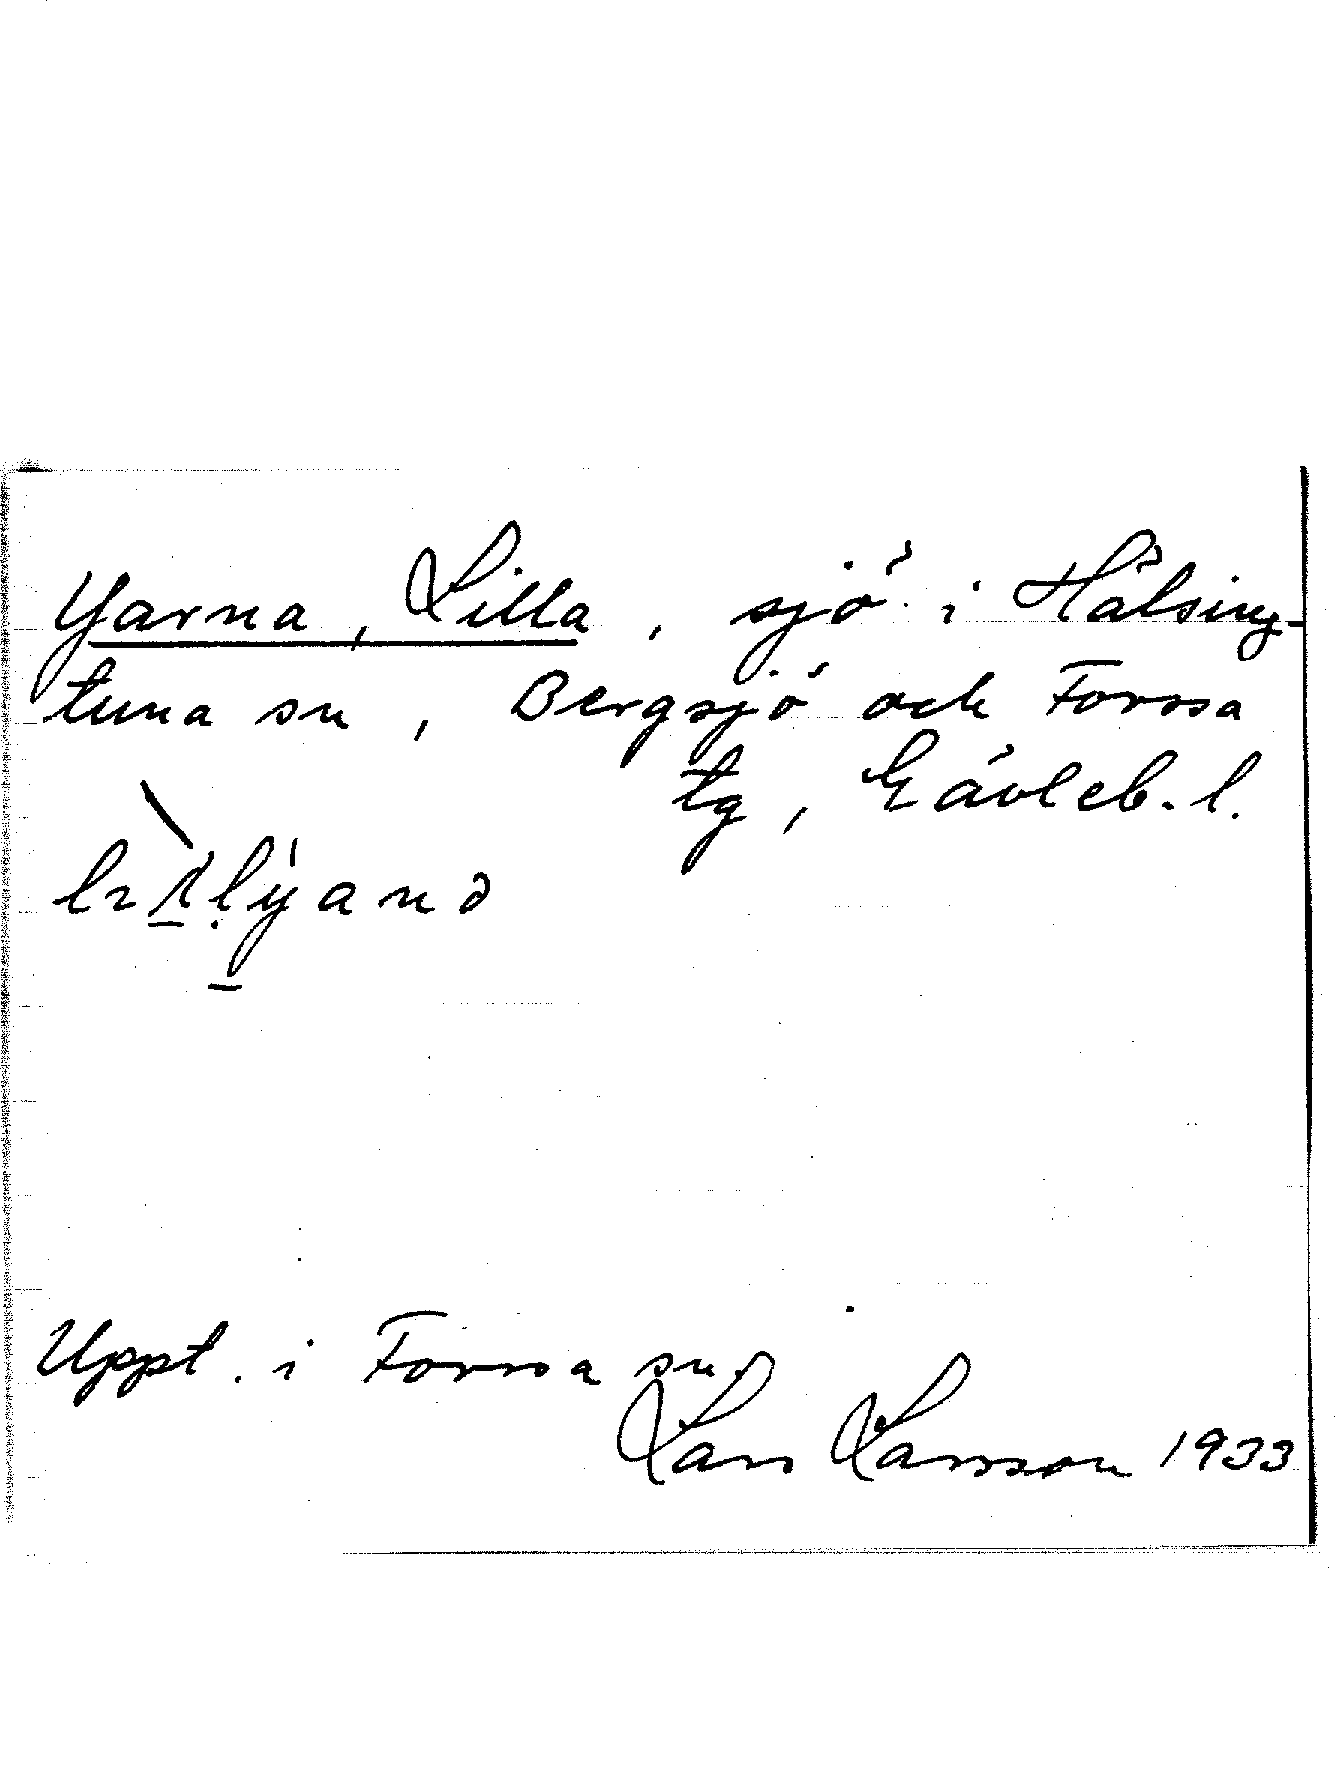 Yarna, Lilla, sjö i Hälsing-
tuna sn, Bergsjö och Forssa
tg, Gävleb. l.
Uppt. i Forssa sn.
Lars Larsson 1933